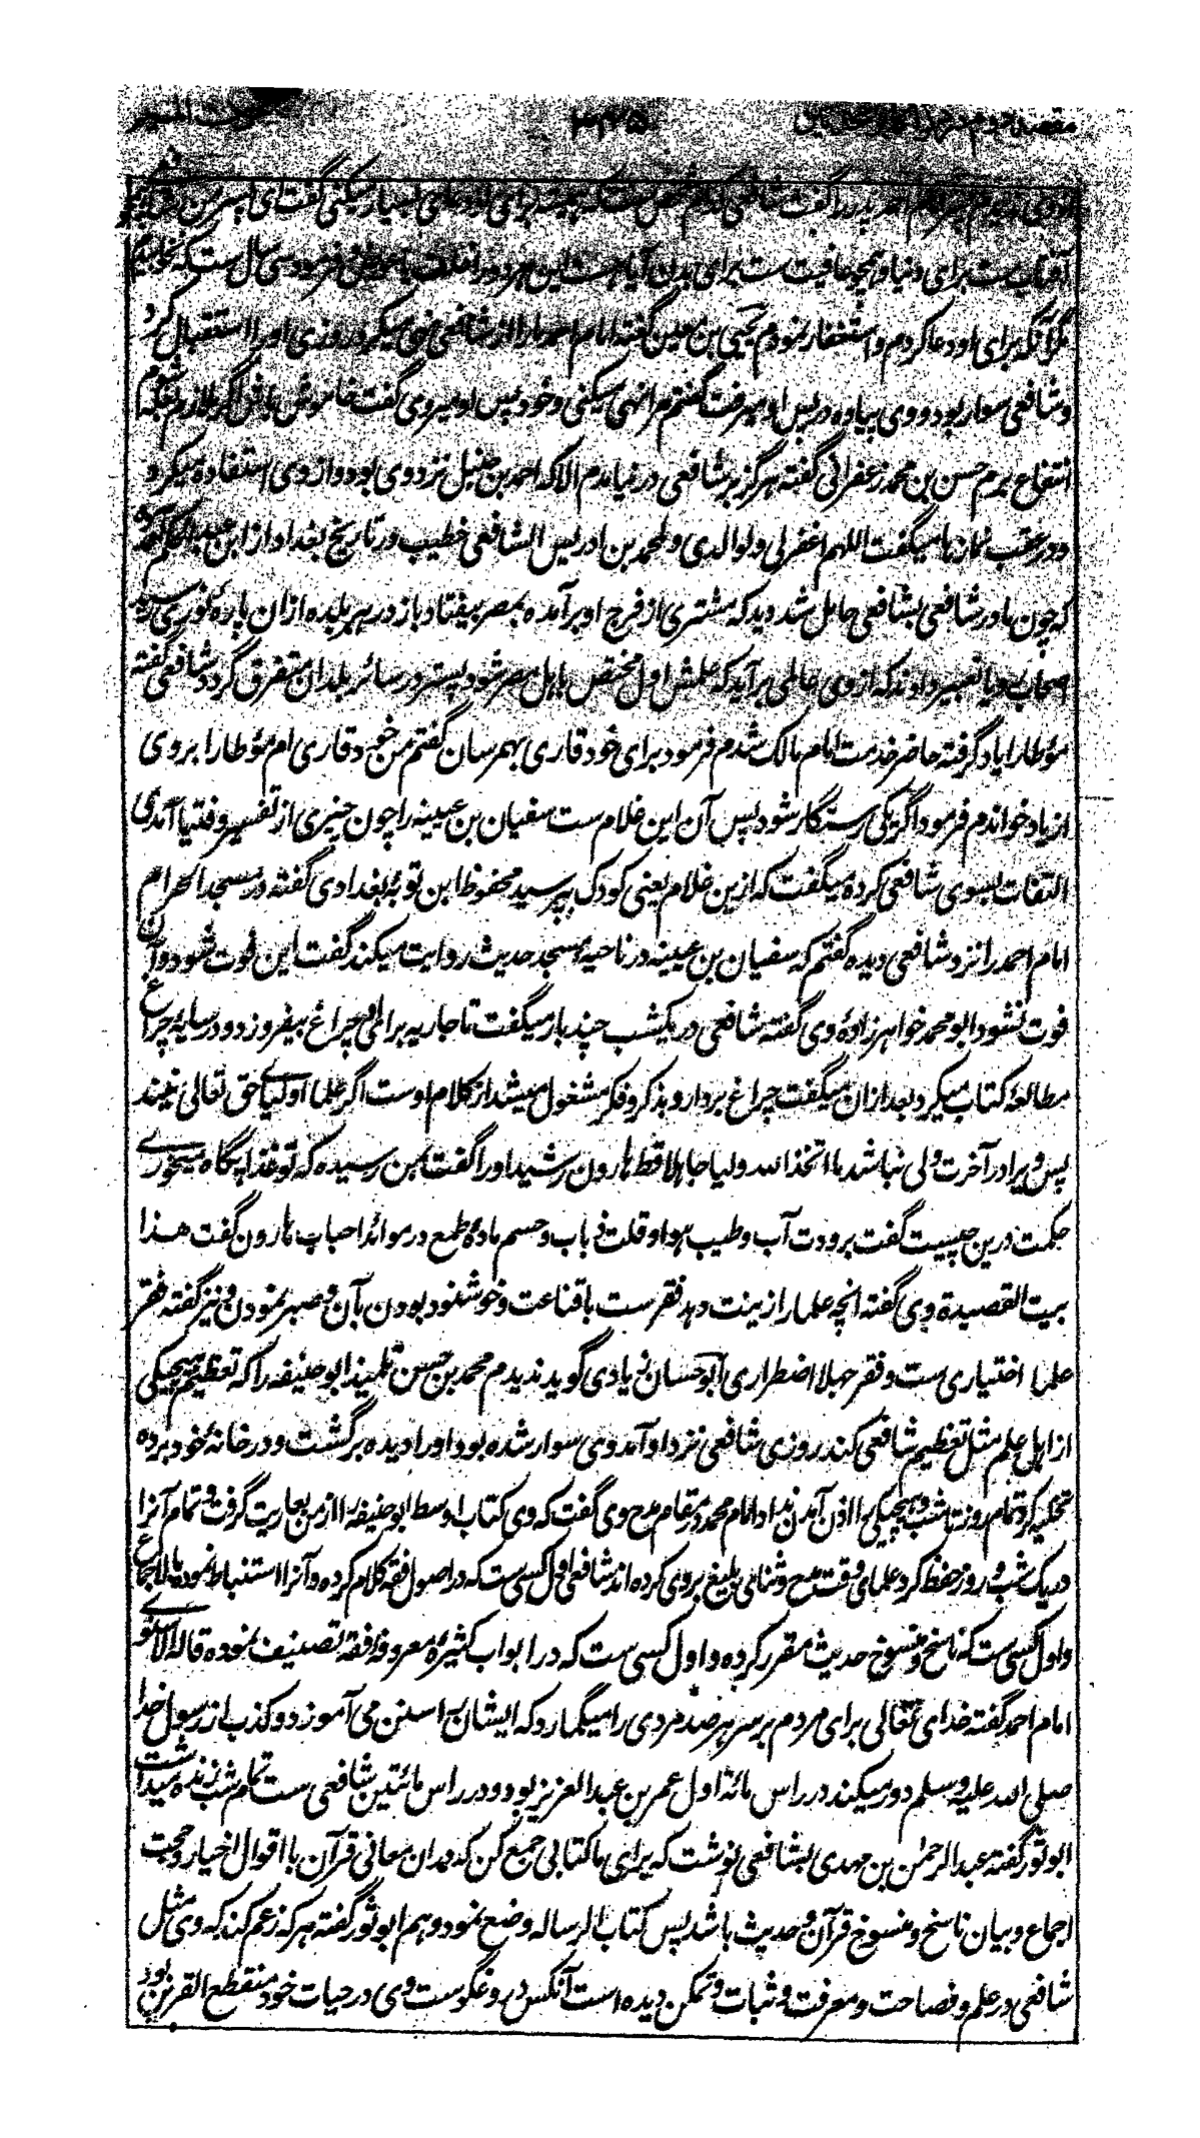 ۳۴۵
آفتاب ست برای دنیا و همچو عافیت ست برای بدن آیا هست این هر دو را خلف یا عوض فرمود سی سال ست که نخوابیدم
مگر آنکه برای او دعا کردم و استغفار نمودم یحیی بن معین گفته امام احمد ما را از شافعی نهی میکرد روزی او را استقبال کرد
و شافعی سوار بود و وی پیاده در پس او میرفت گفتم مرا نهی میکنی و خود پس او میروی گفت خاموش باش اگر ملازم بغله شوم
انتفاع برم حسن بن محمد زعفرانی گفته هرگز بر شافعی در نیامدم الا که احمد بن حنبل نزد وی بود و از وی استفاده میکرد
و در عقب نمازها میگفت اللهم اغفر لی و لوالدی و لمحمد بن ادریس الشافعی خطیب در تاریخ بغداد از ابن عبدالحکم آورده
که چون مادر شافعی بشافعی حامل شد دید که مشتری از فرج او برآمده بمصر بیفتاد باز در هر بلده ازان پاره نوری رسید
اصحاب رویا تعبیر دادند که از وی عالمی برآید که علمش اول مختص باهل مصر شود پستر در سائر بلدان متفرق گردد شافعی گفته
مؤطا را یاد گرفته حاضر خدمت امام مالک شدم فرمود برای خود قاری بهمرسان گفتم من خود قاری ام مؤطا را بروی
از یاد خواندم فرمود اگر یکی رستگار شود پس آن این غلام ست سفیان بن عیینه را چون چیزی از تفسیر و فتیا آمدی
التفات بسوی شافعی کرده میگفت که ازین غلام یعنی کودک بپرسید محفوظ ابن توبه بغدادی گفته در مسجد الحرام
امام احمد را نزد شافعی دیده گفتم که سفیان بن عیینه در ناحیهٔ مسجد حدیث روایت میکند گفت این فوت شود و آن
فوت نشود ابو محمد خواهرزادهٔ وی گفته شافعی در یکشب چند بار میگفت تا جاریه برای وی چراغ بیفروزد و در سایهٔ چراغ
مطالعهٔ کتاب میکرد بعد ازان میگفت چراغ بردار و بذکر و فکر مشغول میشد از کلام اوست اگر علما اولیای حق تعالی نیند
پس ویرا در آخرت ولی نباشد ما اتخذ الله ولیا جاهلا قط هارون رشید او را گفت بمن رسیده که تو غذا پگاه میخوری
حکمت درین چیست گفت برودت آب و طیب هوا و قلت ذباب و حسم مادهٔ طمع در موائد احباب هارون گفت هذا
بیت القصیدة وی گفته انچه علما را زینت دهد فقر ست با قناعت و خوشنود بودن بآن و صبر نمودن و نیز گفته فقر
علما اختیاری ست و فقر جهلا اضطراری ابو حسان زیادی گوید ندیدم محمد بن حسن تلمیذ ابو حنیفه را که تعظیم هیچیکی
از اهل علم مثل تعظیم شافعی کند روزی شافعی نزد او آمد وی سوار شده بود او را دیده برگشت و در خانهٔ خود برده
تخلیه کرد تمام روز تا شب و هیچیکی را اذن آمدن نداد امام محمد در مقام مدح وی گفت که وی کتاب اوسط ابو حنیفه را از من بعاریت گرفت و تمام آنرا
در یک شب و روز حفظ کرد علمای وقت مدح و ثنای بلیغ بر وی کرده اند شافعی اول کسی ست که در اصول فقه کلام کرده و آنرا استنباط نموده بالاجماع
و اول کسی ست که ناسخ و منسوخ حدیث مقرر کرده و اول کسی ست که در ابواب کثیرهٔ معروفهٔ فقه تصنیف نموده قاله الاسنوی
امام احمد گفته خدای تعالی برای مردم بر سر هر صد مردی را میگمارد که ایشان را سنن می آموزد و کذب از رسول خدا
صلی الله علیه و سلم دور میکند در راس مائهٔ اول عمر بن عبد العزیز بود و در راس مائتین شافعی ست تمام شب زنده میداشت
ابو ثور گفته عبد الرحمن بن مهدی بشافعی نوشت که برای ما کتابی جمع کن که دران معانی قرآن با اقوال اخیار و حجت
اجماع و بیان ناسخ و منسوخ قرآن و حدیث باشد پس کتاب الرساله وضع نمود و هم ابو ثور گفته هر که زعم کند که وی مثل
شافعی در علم و فصاحت و معرفت و ثبات و تمکن دیده است آنکس دروغگوست وی در حیات خود منقطع القرین بود